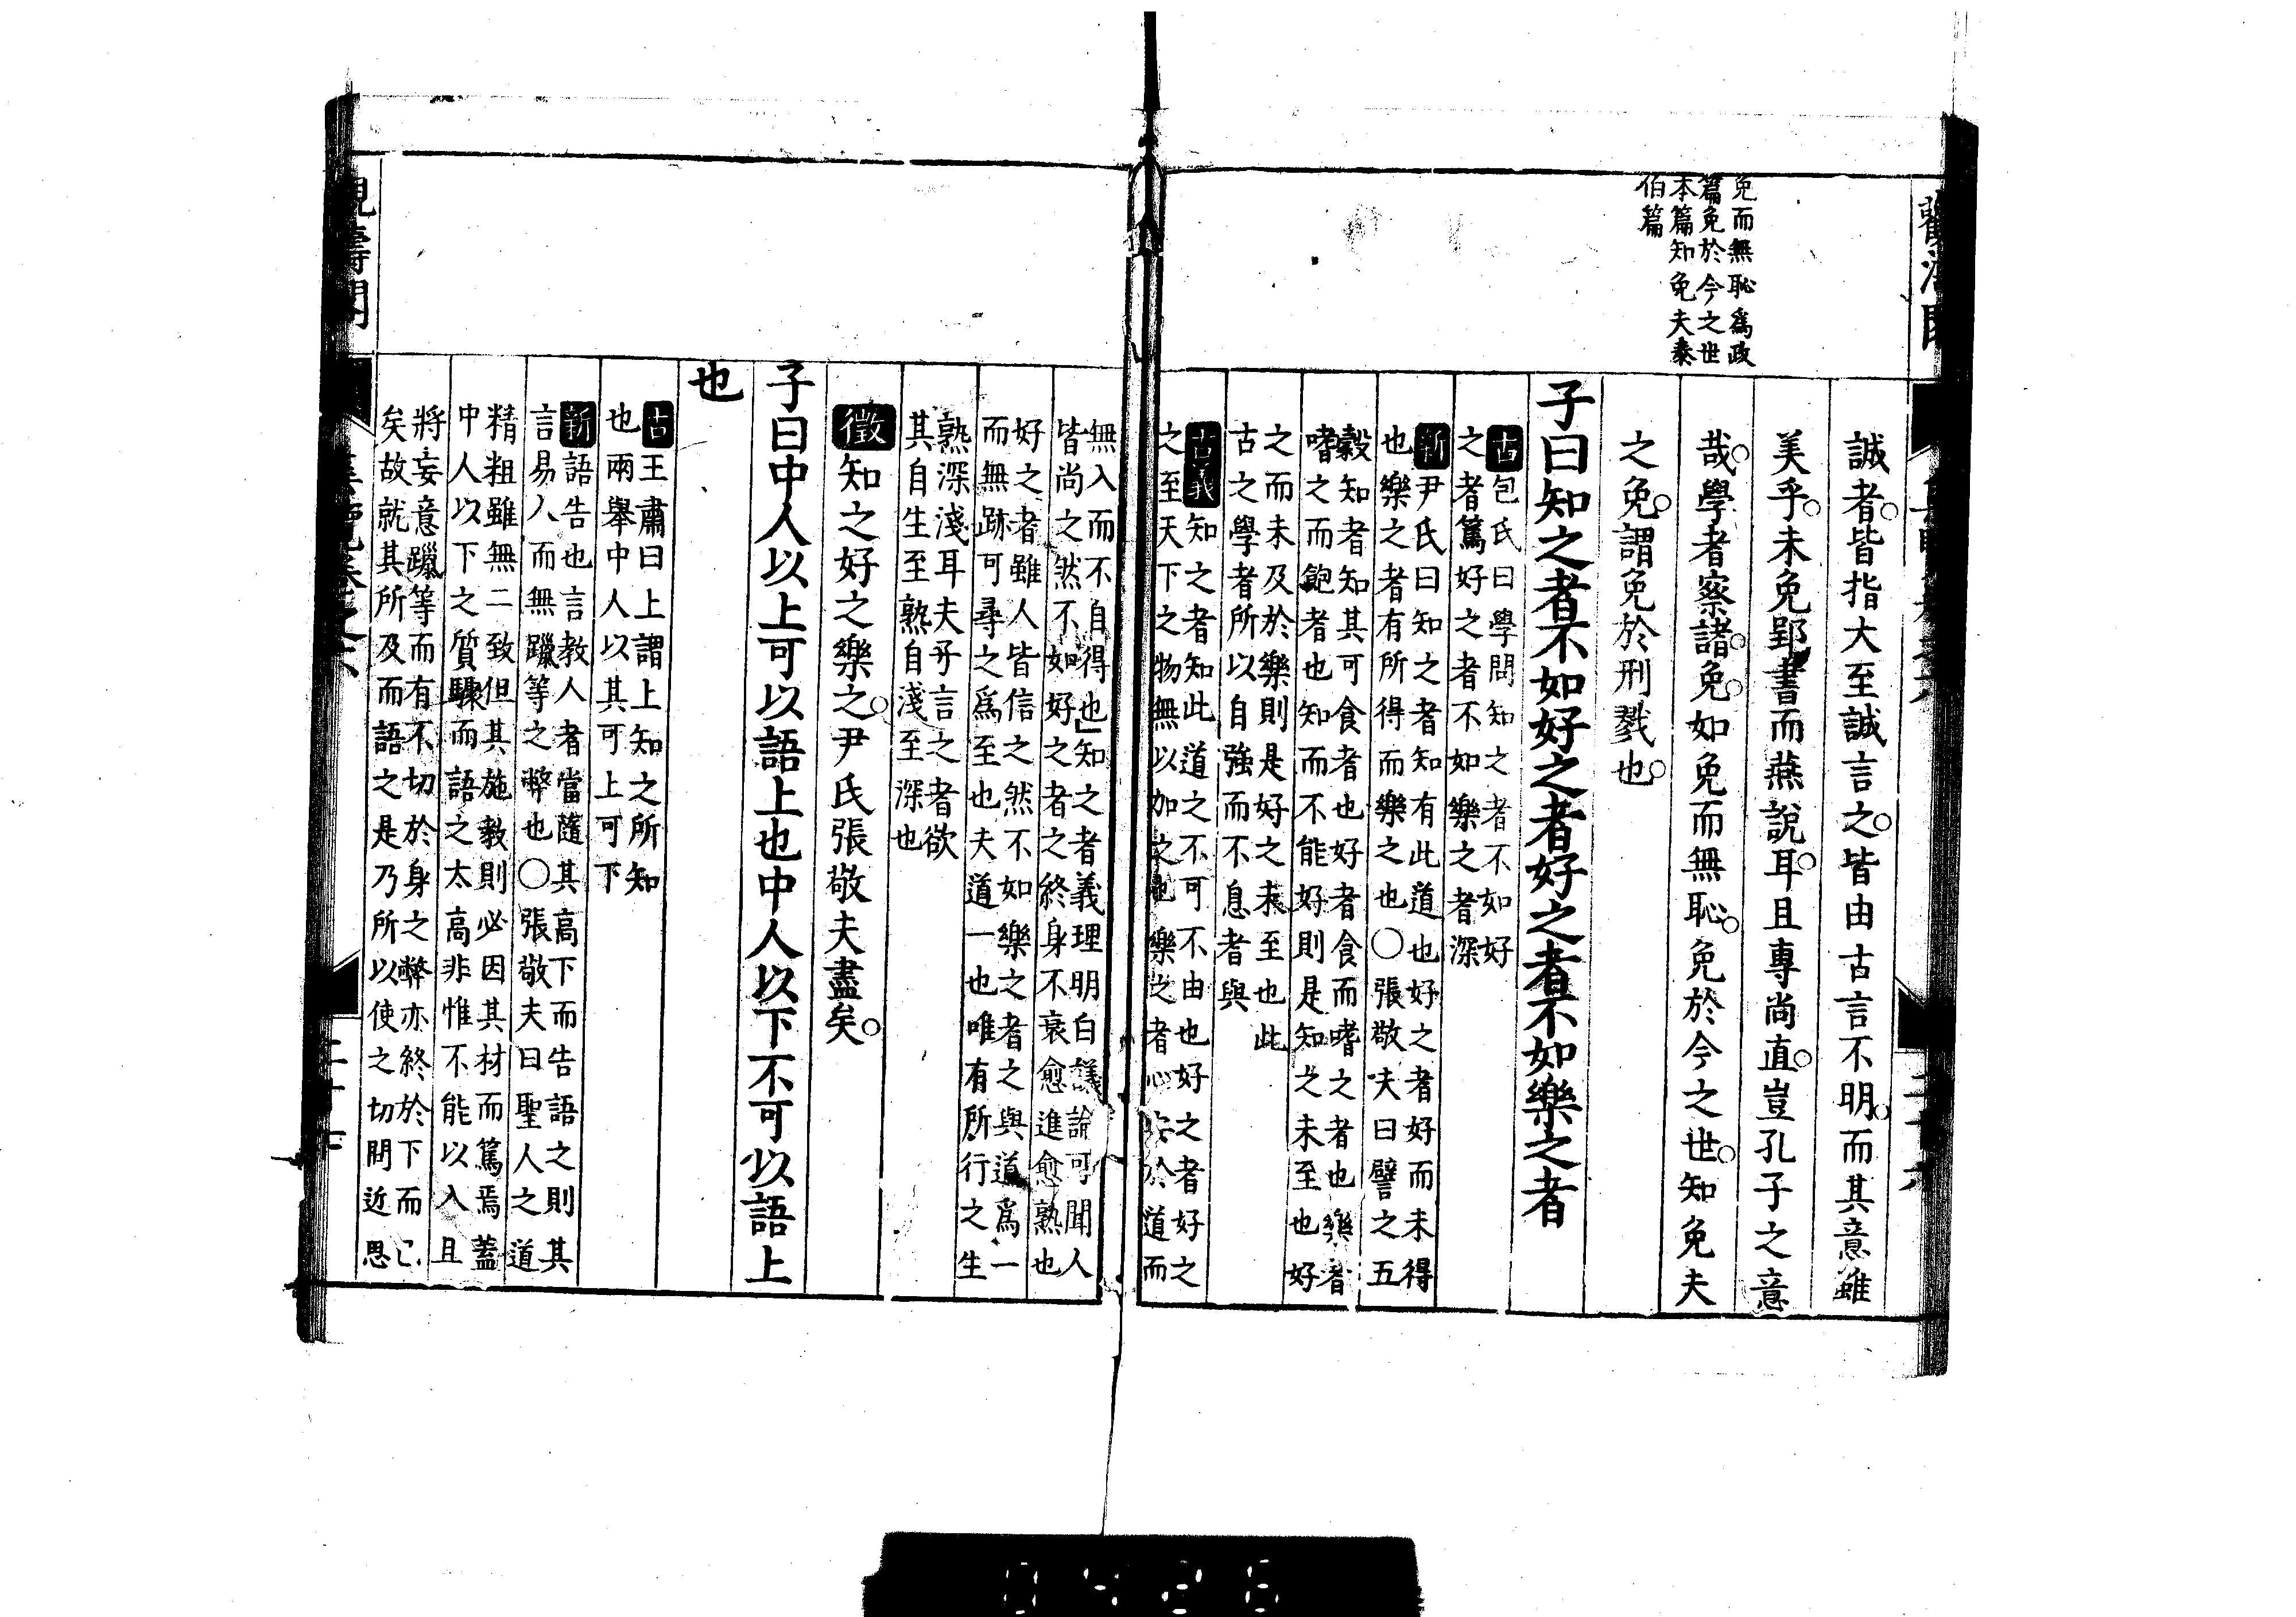 免而無恥爲政
篇免於今之世
本篇知免夫泰
伯篇
誠者皆指大至誠言之皆由古言不明而其意雖
美乎未免郢書而燕說耳且專尚直豈孔子之意
哉學者察諸免如免而無恥免於今之世知免夫
之免謂免於刑戮也
子曰知之者不如好之者好之者不如樂之者
古包氏曰學問知之者不如好
之者篤好之者不如樂之者深
新尹氏曰知之者知有此道也好之者好而未得
也樂之者有所得而樂之也○張敬夫曰譬之五
穀知者知其可食者也好者食而嗜之者也樂者
嗜之而飽者也知而不能好則是知之未至也好
之而未及於樂則是好之未至也此
古之學者所以自強而不息者與
古義知之者知此道之不可不由也好之者好之
之至天下之物無以加之也樂之者心安於道而
無入而不自得也」知之者義理明白議論可聞人
皆尚之然不如好之者之終身不衰愈進愈熟也
好之者雖人皆信之然不如樂之者之與道爲一
而無跡可尋之爲至也夫道一也唯有所行之生
熟深淺耳夫子言之者欲
其自生至熟自淺至深也
徵知之好之樂之尹氏張敬夫盡矣
子曰中人以上可以語上也中人以下不可以語上
也
古王肅曰上謂上知之所知
也兩舉中人以其可上可下
新語告也言教人者當隨其高下而告語之則其
言易入而無躐等之弊也○張敬夫曰聖人之道
精粗雖無二致但其施教則必因其材而篤焉蓋
中人以下之質驟而語之太高非惟不能以入且
將妄意躐等而有不切於身之弊亦終於下而已
矣故就其所及而語之是乃所以使之切問近思
0426